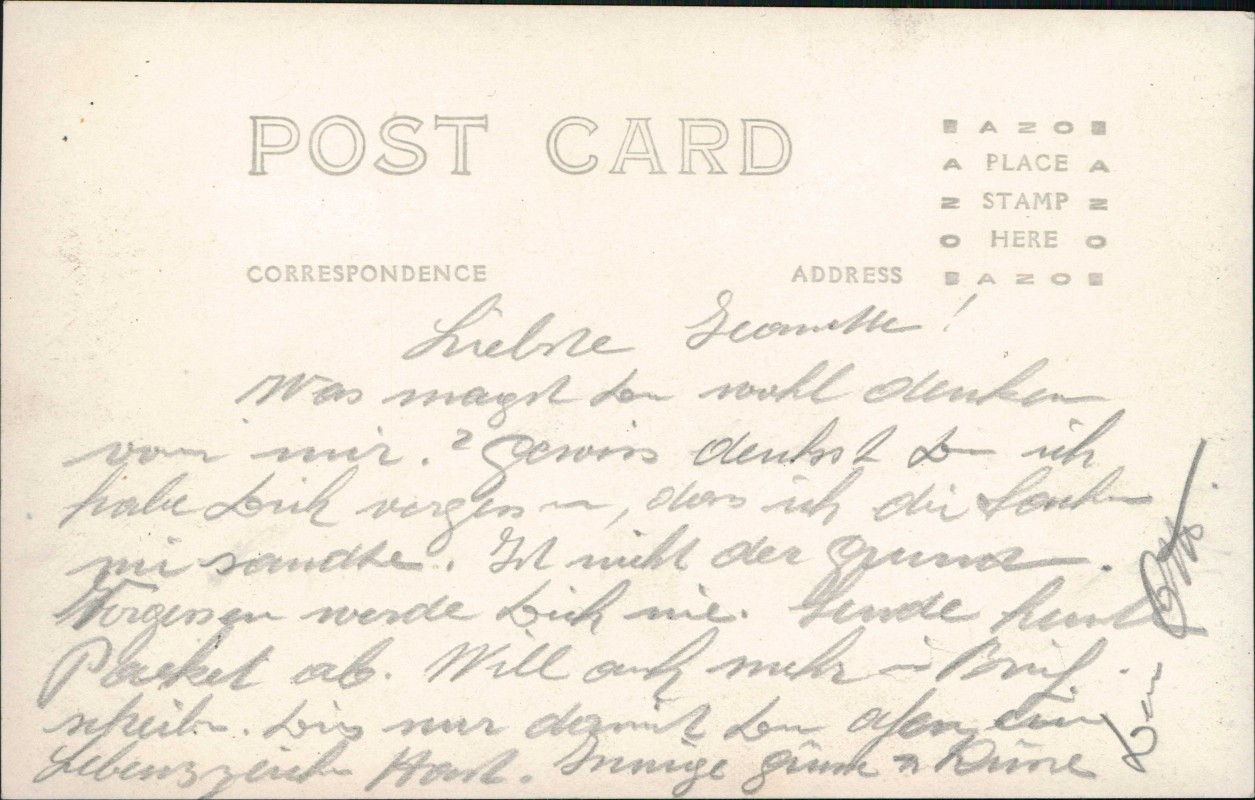 POST CARD
AZO
A PLACE A
Z STAMP Z
O HERE O
AZO
CORRESPONDENCE ADDRESS
Liebste Jeanette!
Was magst Du wohl denken
von mir.? Gewiss denkst Du ich
habe Dich vergessen, dass ich die Sachen
nie sandte. Ist nicht der Grund.
Vergessen werde Dich nie. Sende heute
Packet ab. Will auch mehr in Brief
schreiben. Dies nur damit Du ein
Lebenszeichen Hast. Innige Grüsse & Küsse
Dein Otto.